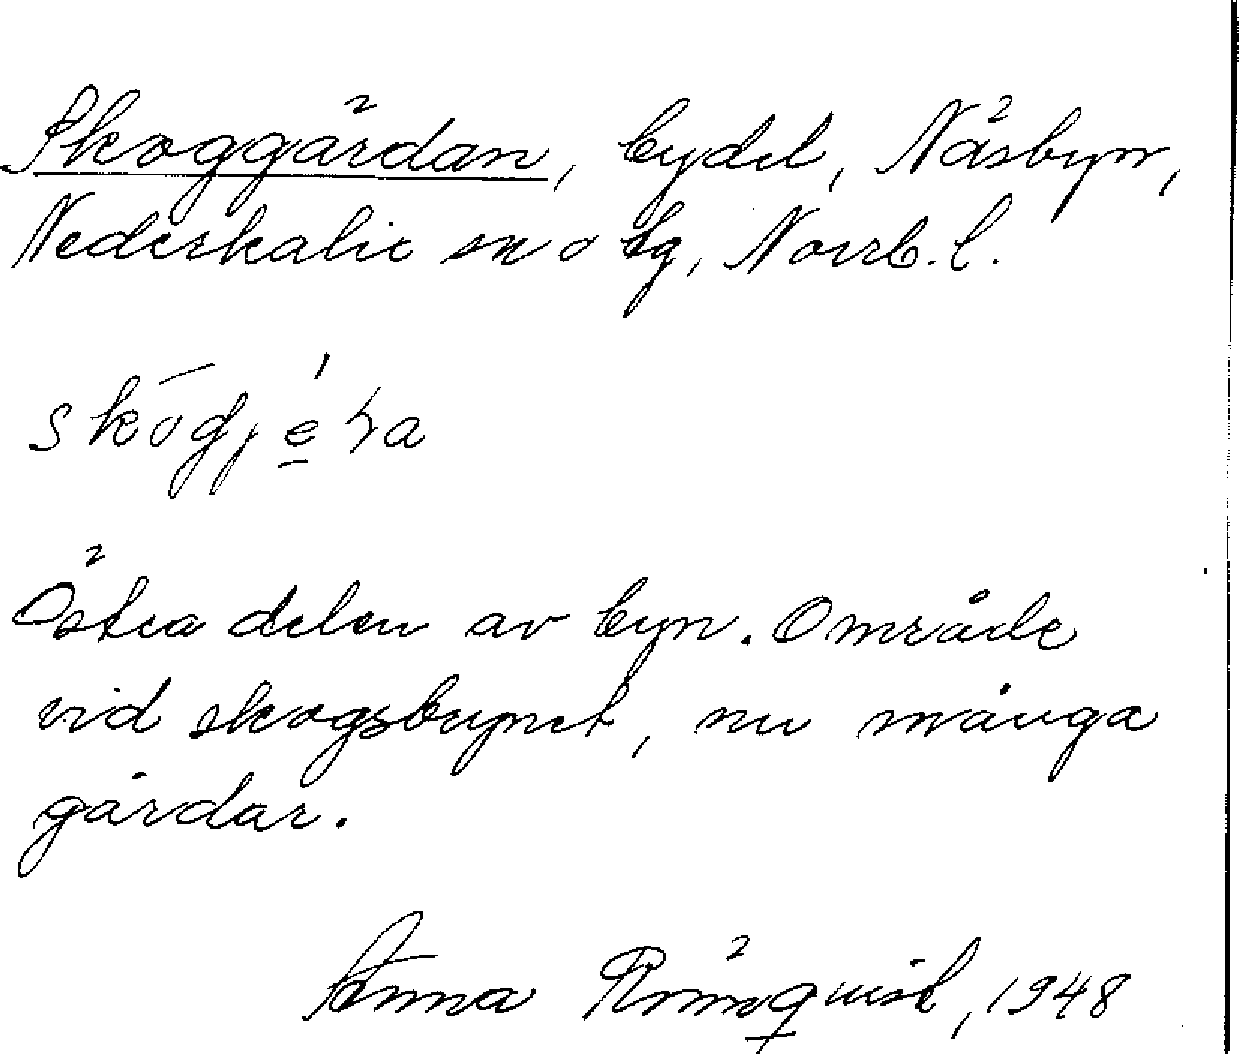 Skoggärdan, bydel, Näsbyn,
Nederkalix sn o tg, Norrb. l.
skōgjéṛa
Östra delen av byn. Område
vid skogsbrynet, nu många
gårdar.
Anna Rönnquist, 1948